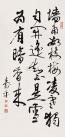 墙角數枝梅凌寒獨
自開遥知不是雪
為有暗香来